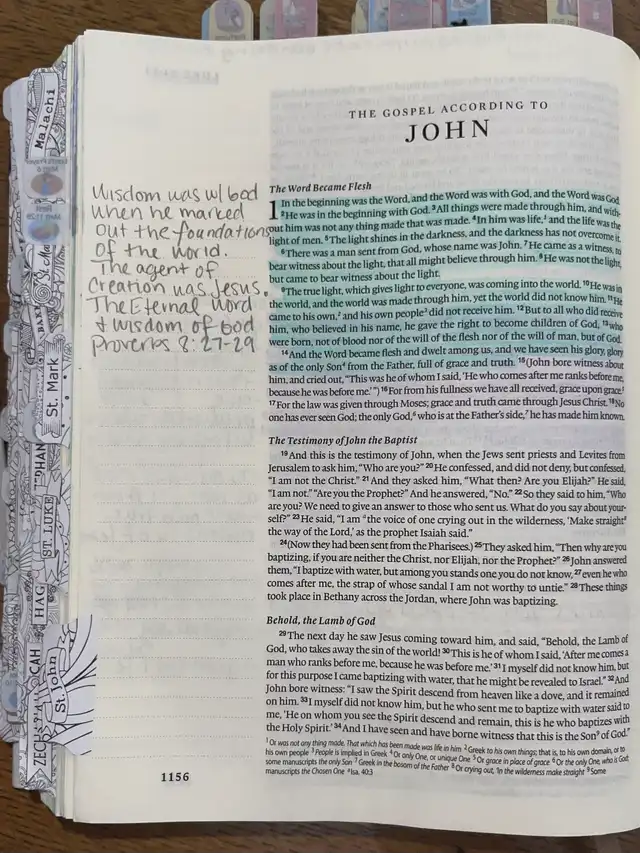 Malachi
St. Mark
EPHAN
ST. LUKE
HAG
ZECH
CAH
St. John
Wisdom was w/ God
when he marked
out the foundations
of the world.
The agent of
Creation was Jesus.
The Eternal Word
+ wisdom of God
Proverbs 8:27-29
THE GOSPEL ACCORDING TO
JOHN
The Word Became Flesh
1 In the beginning was the Word, and the Word was with God, and the Word was God.
2 He was in the beginning with God. 3 All things were made through him, and with-
out him was not any thing made that was made. 4 In him was life,1 and the life was the
light of men. 5 The light shines in the darkness, and the darkness has not overcome it.
6 There was a man sent from God, whose name was John. 7 He came as a witness, to
bear witness about the light, that all might believe through him. 8 He was not the light,
but came to bear witness about the light.
9 The true light, which gives light to everyone, was coming into the world. 10 He was in
the world, and the world was made through him, yet the world did not know him. 11 He
came to his own,2 and his own people3 did not receive him. 12 But to all who did receive
him, who believed in his name, he gave the right to become children of God, 13 who
were born, not of blood nor of the will of the flesh nor of the will of man, but of God.
14 And the Word became flesh and dwelt among us, and we have seen his glory, glory
as of the only Son4 from the Father, full of grace and truth. 15 (John bore witness about
him, and cried out, "This was he of whom I said, 'He who comes after me ranks before me,
because he was before me.'") 16 For from his fullness we have all received, grace upon grace.5
17 For the law was given through Moses; grace and truth came through Jesus Christ. 18 No
one has ever seen God; the only God,6 who is at the Father's side,7 he has made him known.
The Testimony of John the Baptist
19 And this is the testimony of John, when the Jews sent priests and Levites from
Jerusalem to ask him, "Who are you?" 20 He confessed, and did not deny, but confessed,
"I am not the Christ." 21 And they asked him, "What then? Are you Elijah?" He said,
"I am not." "Are you the Prophet?" And he answered, "No." 22 So they said to him, "Who
are you? We need to give an answer to those who sent us. What do you say about your-
self?" 23 He said, "I am the voice of one crying out in the wilderness, 'Make straight8
the way of the Lord,' as the prophet Isaiah said."
24 (Now they had been sent from the Pharisees.) 25 They asked him, "Then why are you
baptizing, if you are neither the Christ, nor Elijah, nor the Prophet?" 26 John answered
them, "I baptize with water, but among you stands one you do not know, 27 even he who
comes after me, the strap of whose sandal I am not worthy to untie." 28 These things
took place in Bethany across the Jordan, where John was baptizing.
Behold, the Lamb of God
29 The next day he saw Jesus coming toward him, and said, "Behold, the Lamb of
God, who takes away the sin of the world! 30 This is he of whom I said, 'After me comes a
man who ranks before me, because he was before me.' 31 I myself did not know him, but
for this purpose I came baptizing with water, that he might be revealed to Israel." 32 And
John bore witness: "I saw the Spirit descend from heaven like a dove, and it remained
on him. 33 I myself did not know him, but he who sent me to baptize with water said to
me, 'He on whom you see the Spirit descend and remain, this is he who baptizes with
the Holy Spirit.' 34 And I have seen and have borne witness that this is the Son9 of God."
1 Or was not any thing made. That which has been made was life in him 2 Greek to his own things; that is, to his own domain, or to
his own people 3 People is implied in Greek 4 Or only One, or unique One 5 Or grace in place of grace 6 Or the only One, who is God;
some manuscripts the only Son 7 Greek in the bosom of the Father 8 Or crying out, 'In the wilderness make straight 9 Some
manuscripts the Chosen One a Isa. 40:3
1156